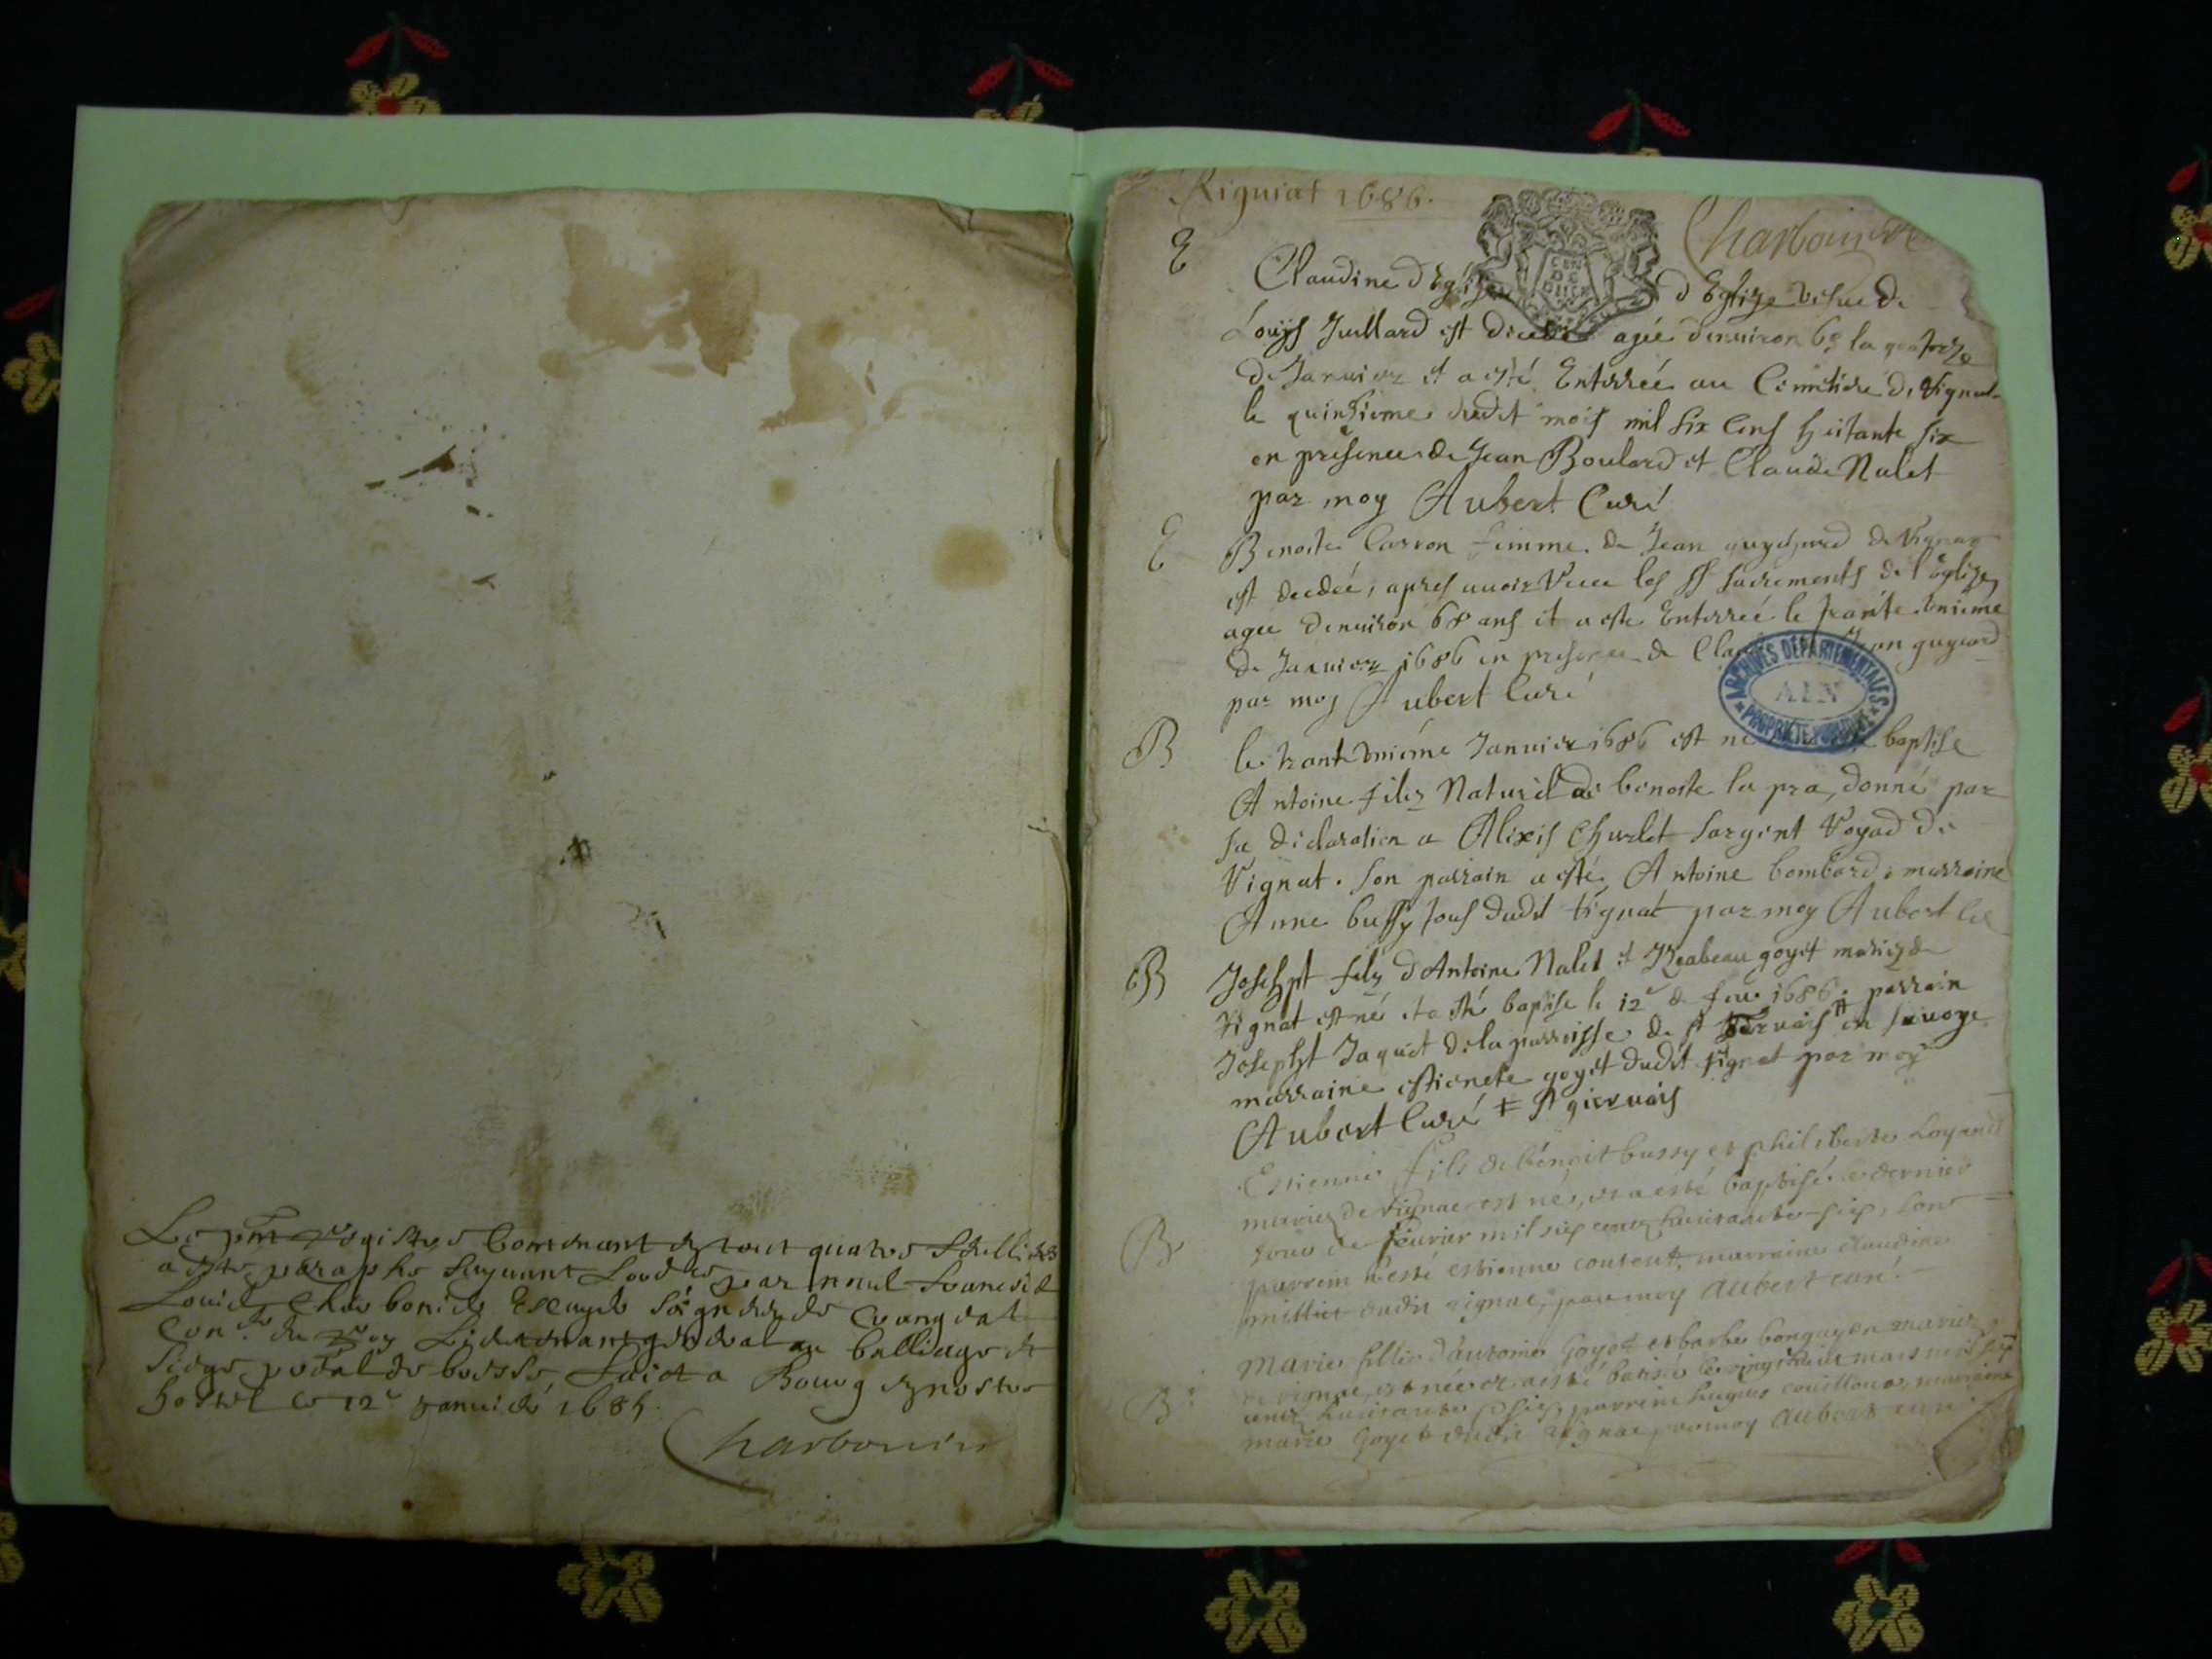 Le pnt registre contenant en tout quatre feuillets
a este paraphe suyvant Lordre par nous francois
Louis Charbonier Escuyer seigneur de Crangeat
Con.er du roy Lieutenant general au balliage et
siege pntal de bresse faict a Bourg en nostre
hostel le 12e janvier 1685
Charbonier
Rigniat 1686.
Charbonier
E
Claudine d Eglise d Eglize vefue de
Louys Juillard est decedée agée denuiron 60 la quatorze
de Januier et a esté Enterrée au Cemetiere de Rignat
le quinsieme dudit mois mil six cens huitante six
en presence de Jean Boulard et Claude Nalet
par moy Aubert Curé
E
Benoite Carron femme de Jean guychard de Rignat
est decdée, apres auoir receu les SS sacrements de l'Eglize
agee denuiron 68 ans et a este Enterrée le trante unieme
de Januier 1686 en presence de Jean guyard
par moy Aubert Curé
B
le trante unieme Januier 1686 est né baptise
Antoine filz Naturel de benoite la pra, donné par
sa declaration a Alexis Churlet sargent Royad de
Rignat. son parrain a esté Antoine bombard marraine
Anne bussy tous dudit Rignat par moy Aubert Cu
B
Josephpt filz d'Antoine Nalet et Yzabeau goyet mariez de
Rignat est né et a esté baptise le 12e de feu 1686 parrain
Josephpt Jaquet de la parroisse de st geruais ‡ en sauoye
marraine estienete goyet dudit Rignat par moy
Aubert Curé ‡ st gieruais
B
Estienne fils de benoit bussy et philiberte Loyand
mariez de Rignat est né, et a esté baptisé le dernier
jour de feurier mil six cens huictante-six, son
parrein a esté estienne coutent, marraine claudine
milliet dudit rignat, par moy Aubert curé.
B
Marie fillie d'antoine Goyet et barbe bonguyon mariez
de rignat, est née et a esté batisée le vingt mars mil six
cens huictante six parrein hugues couilloud marraine
marie Goyet dudit Rignat par moy Aubert curé
ARCHIVES DEPARTEMENTALES
AIN
PROPRIETE PUBLIQUE